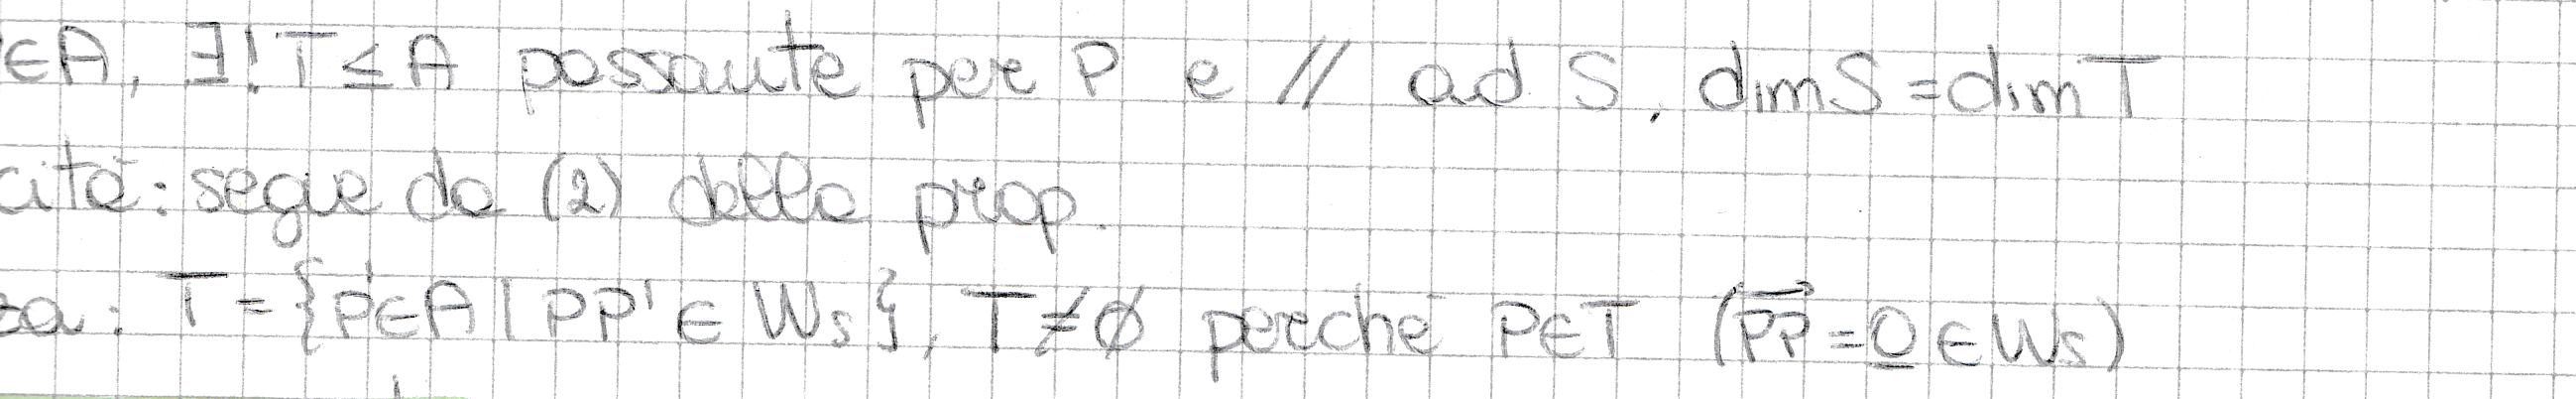 ∈A, ∃!T≤A passante per P e // ad S, dimS=dimT
cità: segue da (2) della prop.
za: T={P'∈A | PP' ∈ Ws}, T≠∅ perché P∈T (PP=0∈Ws)